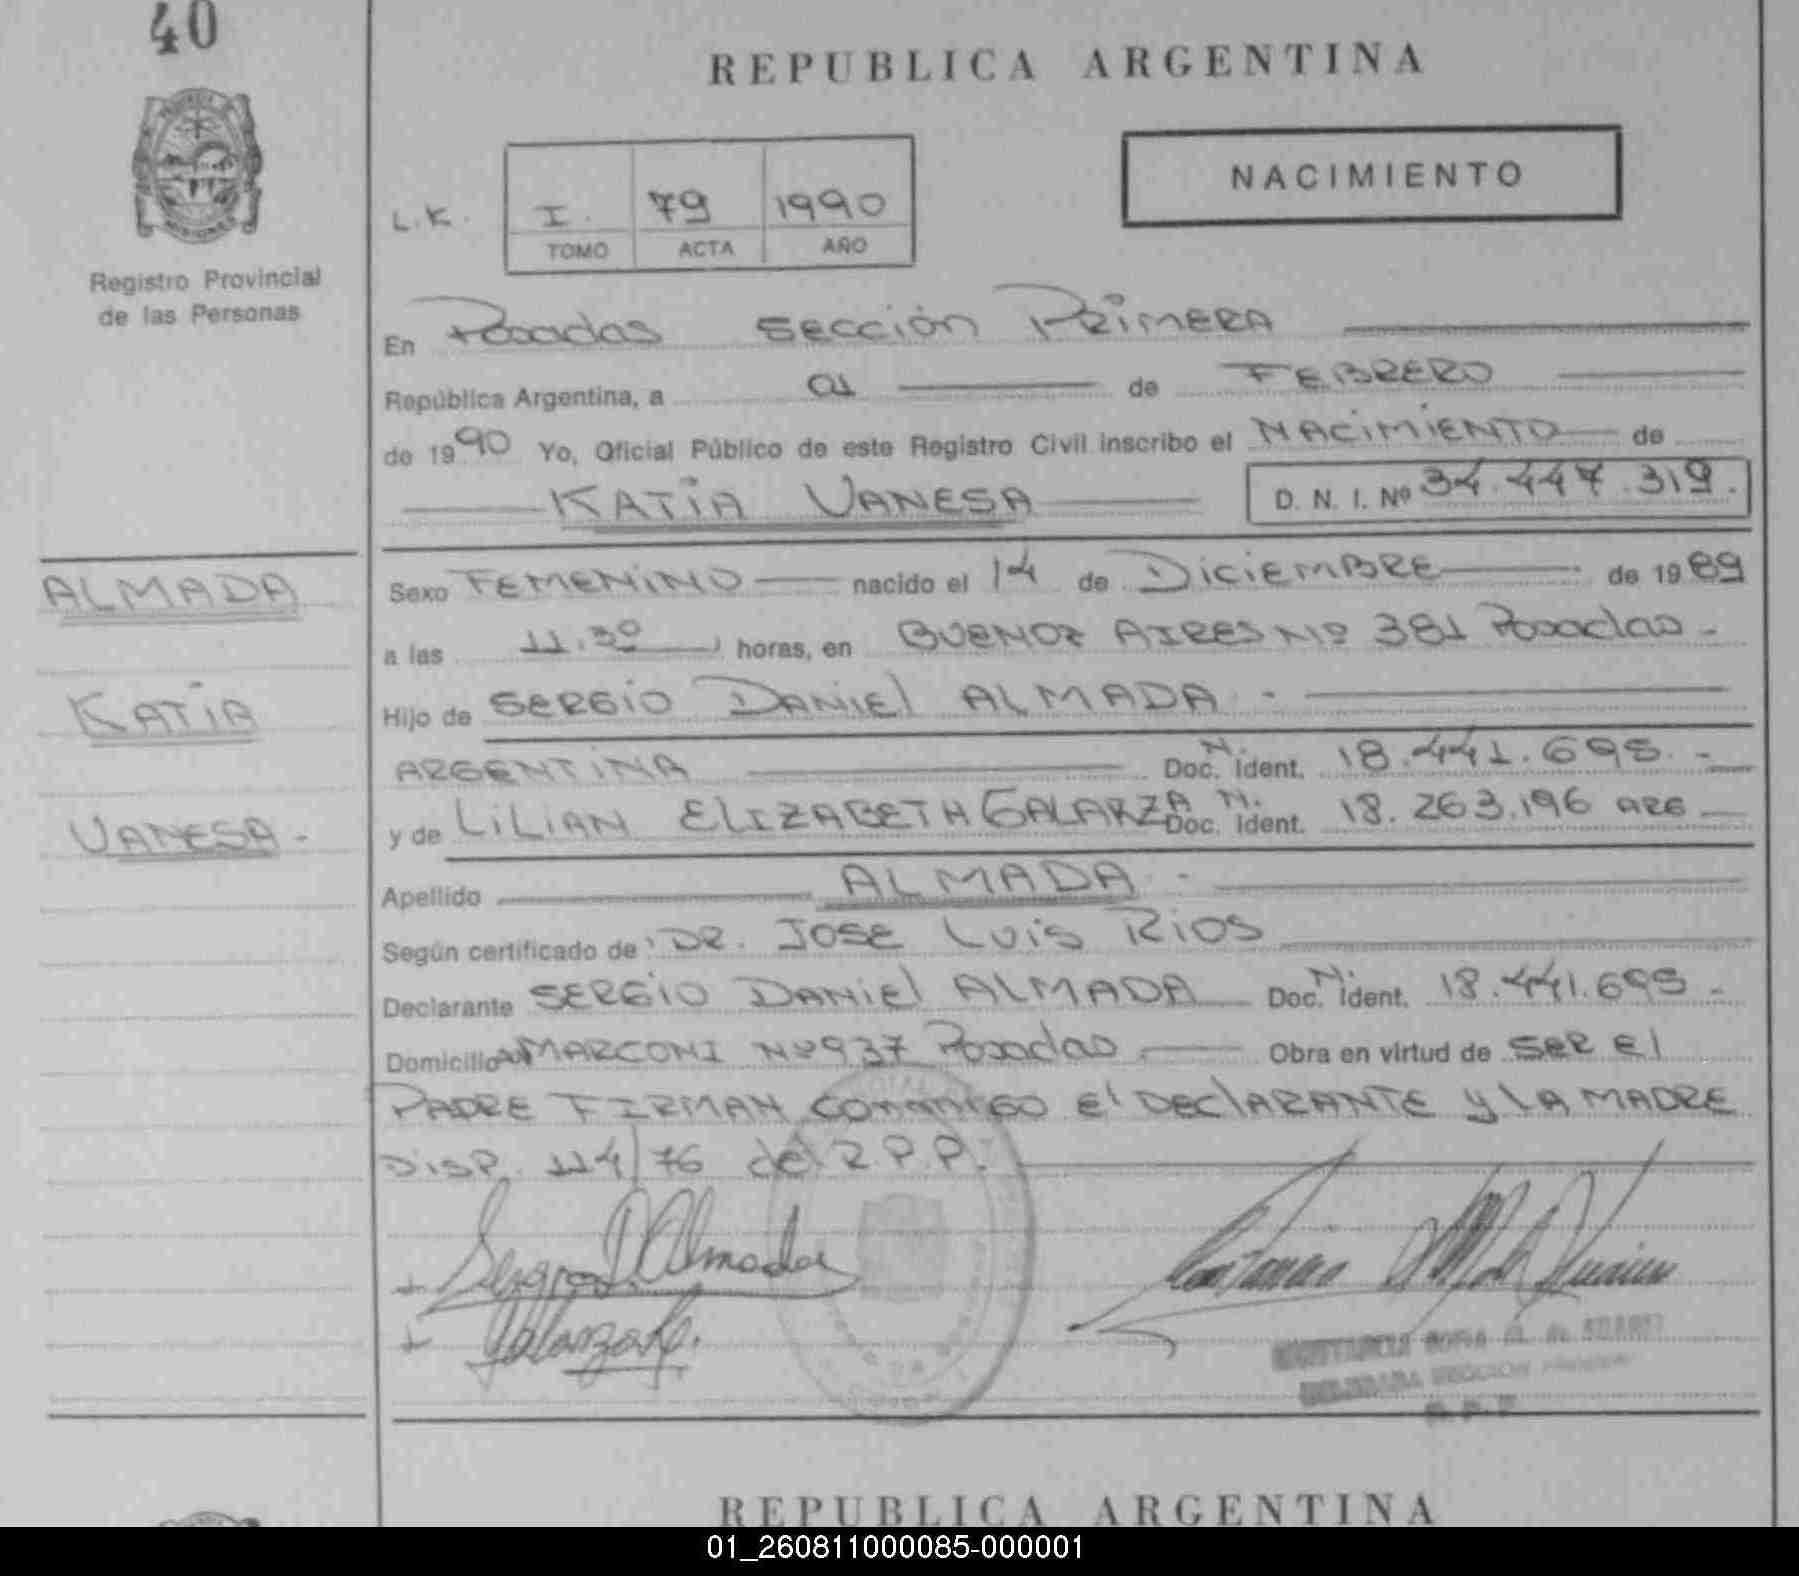 40
REPUBLICA ARGENTINA
NACIMIENTO
L.K. I. 79 1990
TOMO ACTA AÑO
Registro Provincial
de las Personas
En Posadas Sección Primera
República Argentina, a 01 de FEBRERO
de 1990 Yo, Oficial Público de este Registro Civil inscribo el NACIMIENTO de
KATIA VANESA D. N. I. Nº 34.447.319.
ALMADA
KATIA
VANESA -
Sexo FEMENINO nacido el 14 de DICIEMBRE de 1989
a las 11.30 horas, en BUENOS AIRES Nº 381 Posadas -
Hijo de SERGIO DANIEL ALMADA -
ARGENTINA Doc. N. Ident. 18.441.695. -
y de LILIAN ELIZABETH GALARZA Doc. N. Ident. 18.263.196 ARG
Apellido ALMADA -
Según certificado de DR. JOSE LUIS RIOS
Declarante SERGIO DANIEL ALMADA Doc. N. Ident. 18.441.695 -
Domicilio AV MARCONI Nº 937 Posadas Obra en virtud de SER El
PADRE FIRMAN CONMIGO El DECLARANTE Y LA MADRE
DISP. 114/76 del R.P.P.
Sergio D. Almada
REPUBLICA ARGENTINA
01_260811000085-000001